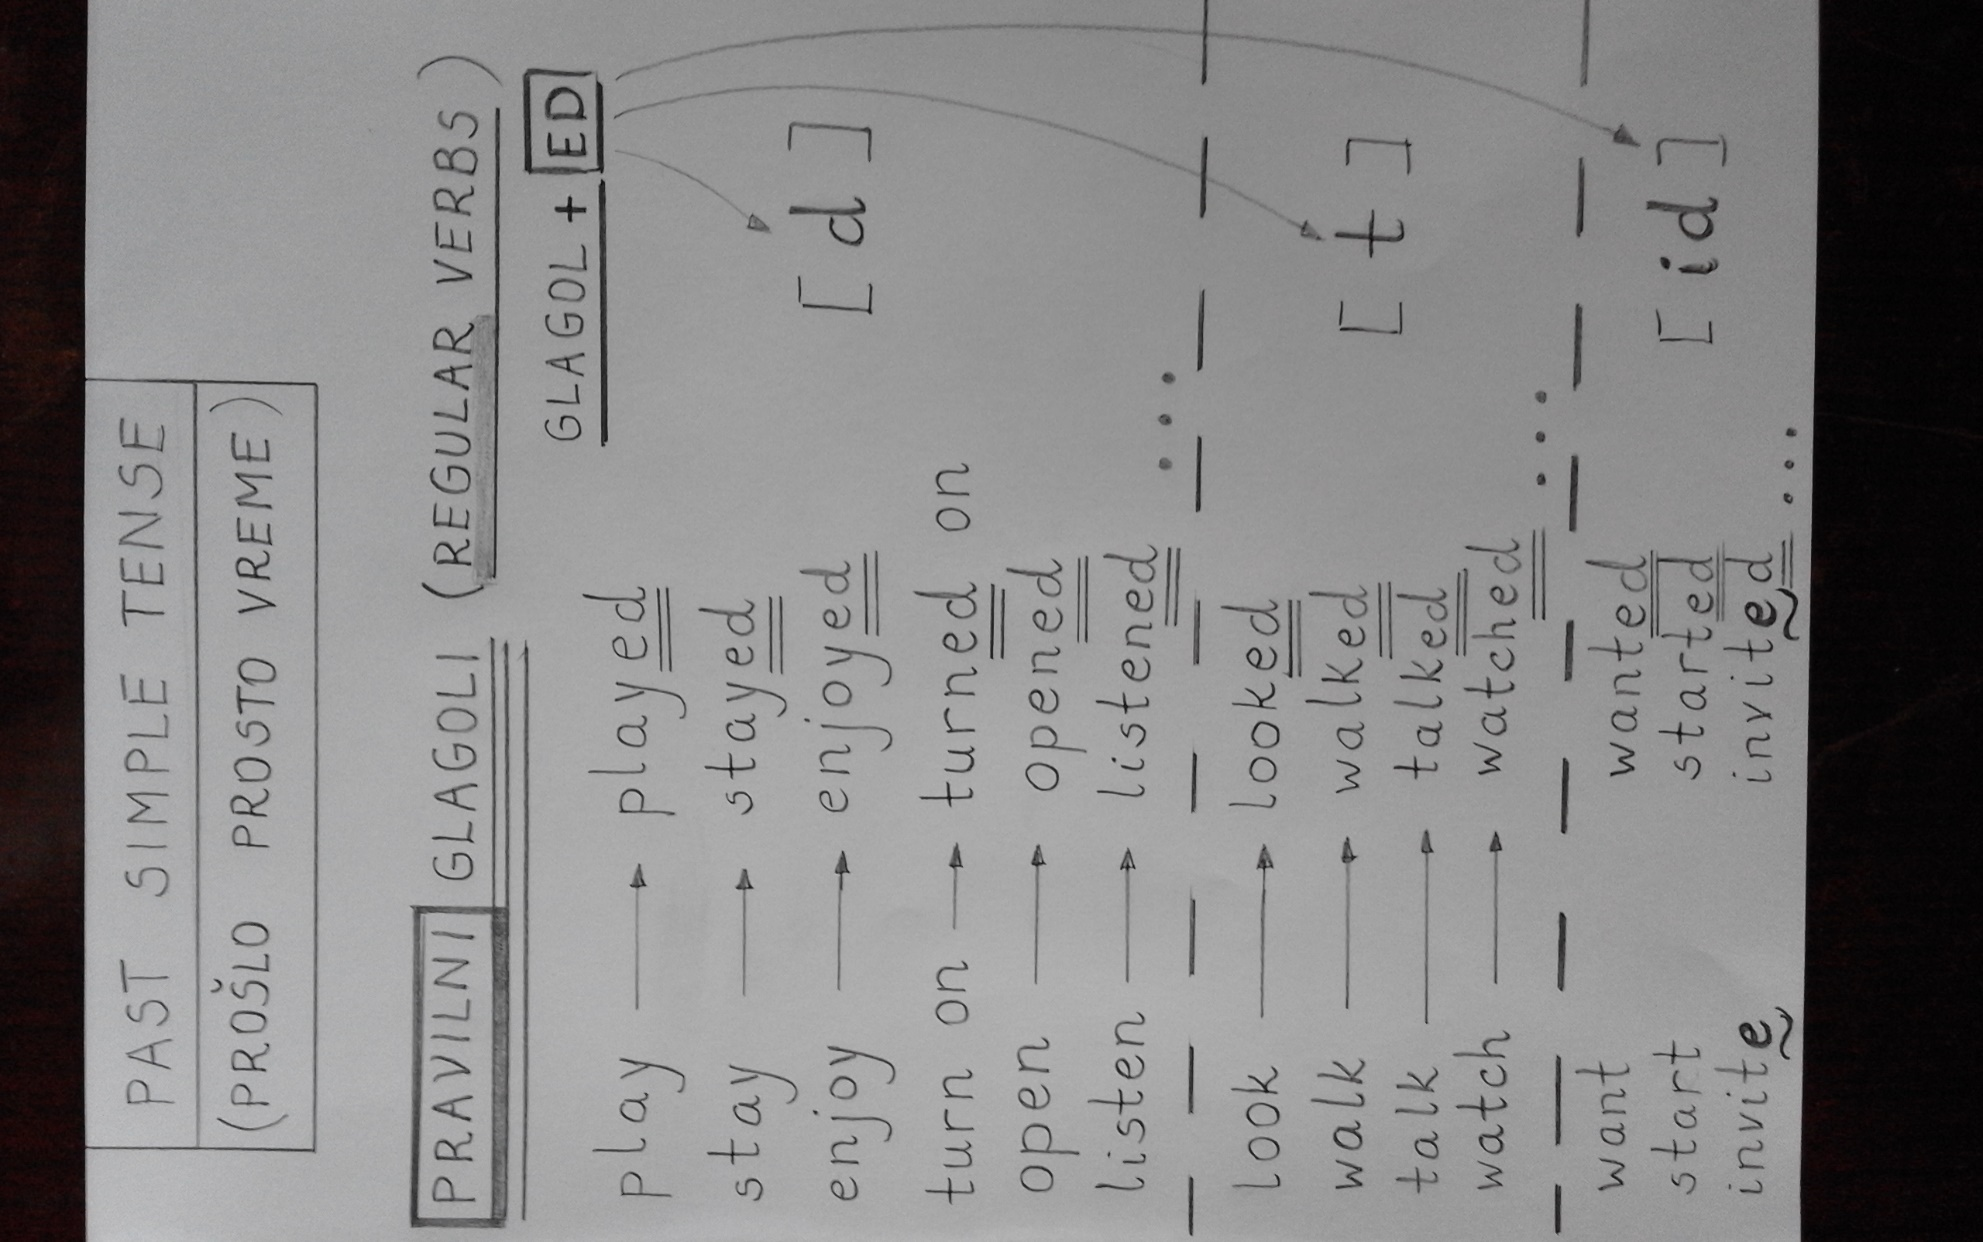 PAST SIMPLE TENSE
(PROŠLO PROSTO VREME)
PRAVILNI GLAGOLI (REGULAR VERBS)
GLAGOL + ED
play → played
stay → stayed [d]
enjoy → enjoyed
turn on → turned on
open → opened
listen → listened ...
look → looked
walk → walked [t]
talk → talked
watch → watched ...
want wanted
start started [id]
invite invited ...